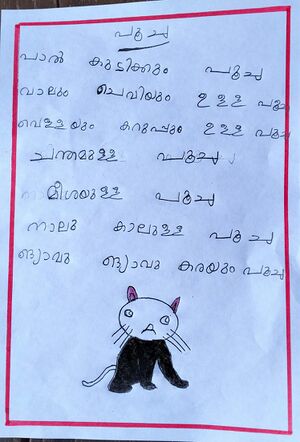 പൂച്ച
പാൽ കുടിക്കും പൂച്ച
വാലും ചെവിയും ഉള്ള പൂച്ച
വെള്ളയും കറുപ്പും ഉള്ള പൂച്ച
ചന്തമുള്ള പൂച്ച
മീശയുള്ള പൂച്ച
നാലു കാലുള്ള പൂച്ച
ങ്യാവു ങ്യാവു കരയും പൂച്ച